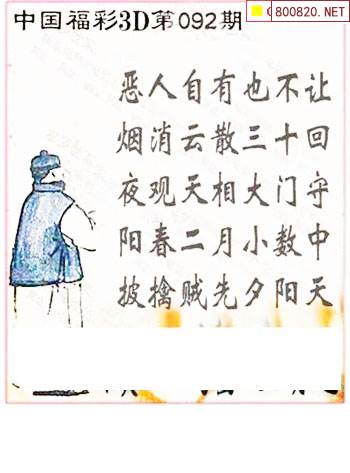 中国福彩3D第092期
800820.NET
恶人自有也不让
烟消云散三十回
夜观天相大门守
阳春二月小数中
披擒贼先夕阳天